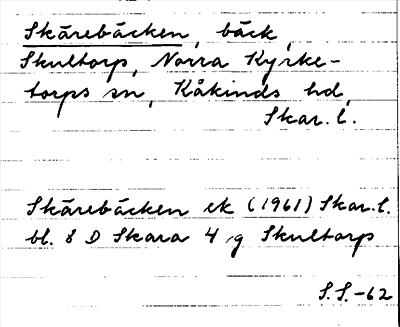 Skärebäcken, bäck,
Skultorp, Norra Kyrke-
torps sn, Kåkinds hd,
Skar. l.
Skärebäcken ek (1961) Skar. l.
bl. 8 D Skara 4 g Skultorp
S.S.-62